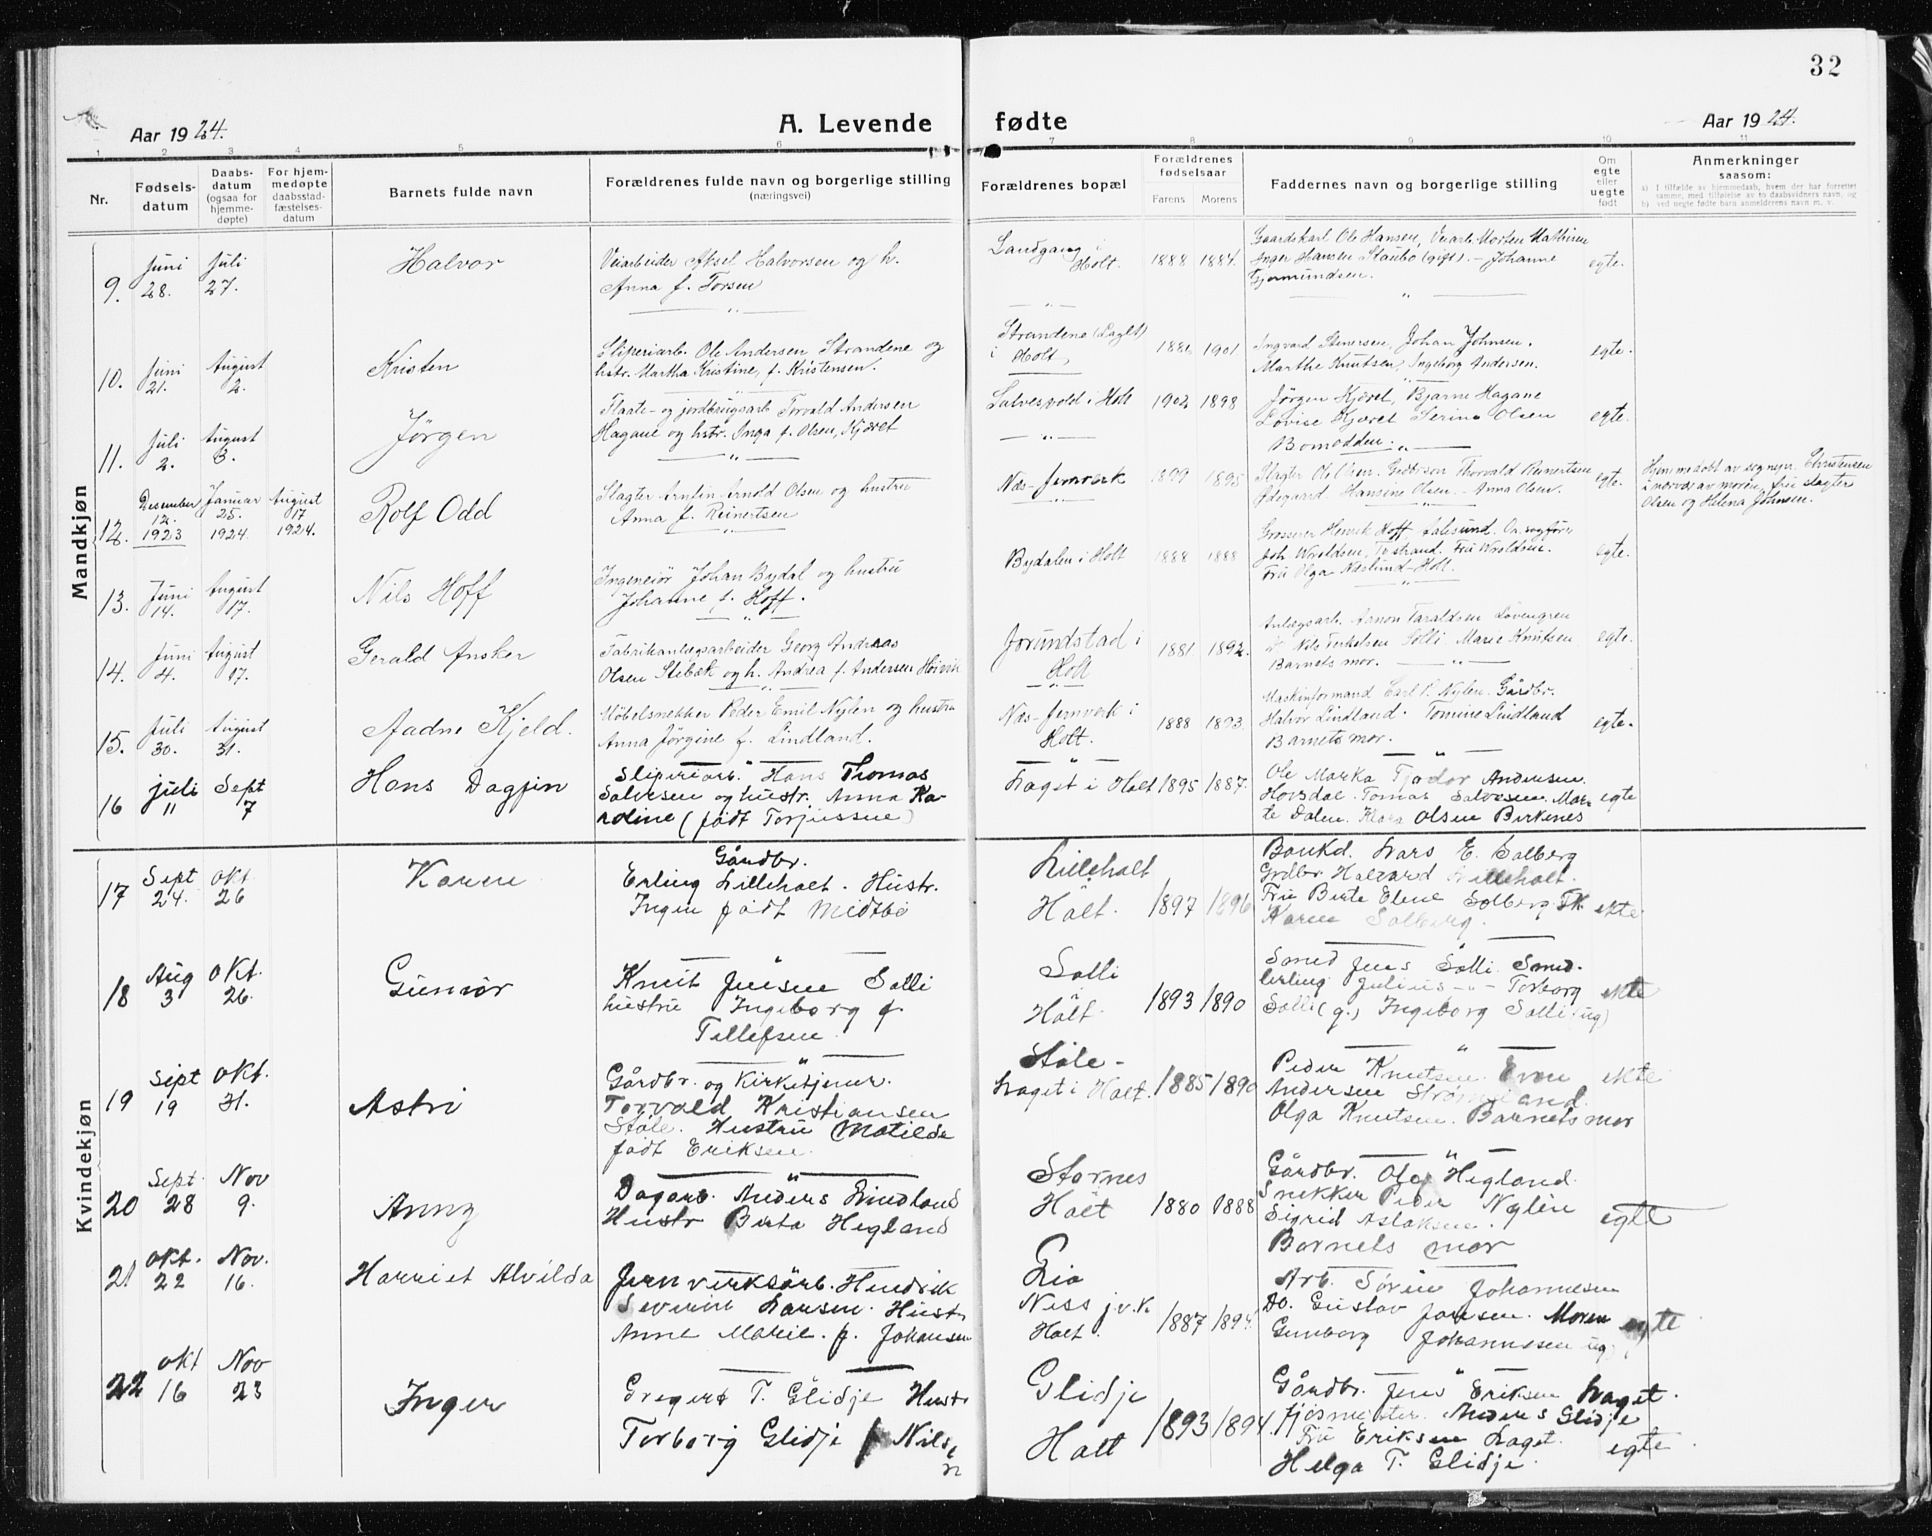 32
Aar 1924.
A. Levende fødte
Aar 1924.
1 2 3 4 5 6 7 8 9 10 11
Nr.
Fødsels-
datum
Daabs-
datum
(ogsaa for
hjemme-
døpte)
For hjem-
medøpte
daabsstad-
fæstelses-
datum
Barnets fulde navn
Forældrenes fulde navn og borgerlige stilling
(næringsvei)
Forældrenes bopæl
Forældrenes
fødselsaar
Farens Morens
Faddernes navn og borgerlige stilling
Om
egte
eller
uegte
født
Anmerkninger
saasom:
a) I tilfælde av hjemmedaab, hvem der har forrettet
samme, med tilføielse av to daabsvidners navn, og
b) ved uegte fødte barn anmelderens navn m. v.
Mandkjøn
9. Juni 28. Juli 27.
Halvor
Veiarbeider Aksel Halvorsen og h.
Anna f. Torsen
Landgang i
Holt.
1888 1884.
Gaardskarl Ole Hansen, Veiarb. Morten Mathisen
Inger Hansen Staubo (gift). - Johanne
Gjermundsen.
egte.
10. Juni 21. August 2.
Kristen
Sliperiarb. Ole Andersen Strandene og
hstr. Martha Kristine, f. Kristensen.
Strandene (Laget)
i Holt,
1901
Ingvard Stenersen, Johan Johnsen.
Marthe Knutsen, Ingeborg Andersen.
egte.
11. Juli 2. August 3.
Jørgen
Flaate- og jordbrugsarb. Torvald Andersen
Hagane og hstr. Inga f. Olsen, Kjøvet
Salvesvold i Holt
1902 1898
Jørgen Kjøvet, Bjarne Hagane
Lovise Kjøvet Serine Olsen
Bomodden.
egte.
12. Desember 12. 1923 Januar 25. 1924. August 17 1924.
Rolf Odd
Slagter Arntin Arnold Olsen og hustru
Anna f. Reinertsen
Næs Jernverk
1899 1895
Slagter Ole Olsen. Thorvald Reinertsen
Ødegaard Hansine Olsen. - Anna Olsen.
egte.
Hjemmedøbt av sognepr. Christensen
i nærvær av moren, fru slagter
Olsen og Helena Johnsen.
13. Juni 14. August 17.
Nils Hoff
Ingeneiør Johan Bydal og hustru
Johanne f. Hoff.
Bydalen i Holt
1888 1888
Grosserer Henrik Hoff, Aalesund. Or. sagfører
Joh. Wroldsen, Tvestrand. Fru Wroldsen.
Fru Olga Næslund-Holt.
egte.
14. Juni 4. August 17.
Gerald Ansker
Fabrikanlægsarbeider Georg Andreas
Olsen Stibæk og h. Andrea f. Andersen
Jorundstad i
Holt
1881 1892.
Anlægsarb. Aanon Taraldsen Løvengren
Nils Terkelsen Solli Marie Knutsen
Barnets mor.
egte.
15. Juli 30. August 31.
Aadne Kjeld.
Møbelsnekker Peder Emil Nylen og hustru
Anna Jørgine f. Lindland.
Næs Jernverk i
Holt.
1888 1893.
Maskinformand Carl P. Nylen. Gårdbr.
Halvor Lindland. Tomine Lindland
Barnets mor.
egte.
16 juli 11 Sept 7
Hans Dagfin
Sliperiarb. Hans Thomas
Salvesen og hustr. Anna Ka-
roline (født Torjussne)
Laget i Holt
1895 1887.
Ole Marka Tjodor Andersen.
Hovsdal. Tomas Salvesen Mar-
te Dalen. Klara Olsen Birkenes
egte
Kvindekjøn
17 Sept 24. Okt. 26
Karen
Gårdbr.
Erling Lilleholt. Hustr.
Ingen født Midtbö
Lilleholt
Holt.
1897 1896
Bankd. Lars E. Solberg
Grdbr Halvard Lilleholt.
Fru Birte Elene Solberg. Fk.
Karen Solberg.
ekte
18 Aug 3 Okt. 26.
Gunvor
Knut Jensen Solli
hustru Ingeborg f.
Tellefsen
Solli
Holt.
1893 1890
Smed Jens Solli. Smed-
lerling Julius -"- Torborg
Solli (g.) Ingeborg Solli (ug)
ekte
19 Sept 19 Okt. 31.
Astri
Gårdbr. og Kirketjener.
Torvald Kristiansen
Støle. Hustru Matilde
født Eriksen.
Støle-
Laget i Holt.
1885 1890
Peder Knutsen Even
Andersen Strømsland.
Olga Knutsen. Barnets mor
ekte
20 Sept. 28 Nov 9.
Anny
Dagarb. Anders Lindland
Hustr Birta Hegland
Stornes
Holt
1880 1888
Gårdbr. Ole Hegland.
Snekker Peder Nylén
Sigrid Aslaksen.
Barnets mor
egte
21 Okt. 22 Nov. 16.
Harriet Alvilda
Jernverksarb. Hendrik
Severin Larsen. Hustr
Anne Marie. f. Johansen
Lia
Ness jv.k
Holt.
1887 1894.
Arb. Sørin Johannesen
Do. Gustav Jansen. Moren
Gunborg Johannesen ug)
egte
22 Okt 16 Nov 23
Inger
Gregert T. Glidje Hustr
Torborg Glidje f Nilse
n
Glidje
Holt
1893 1894.
Gårdbr. Jens Eriksen Laget.
fjøsmester. Anders Glidje
Fru Eriksen Laget.
Helga T. Glidje.
egte